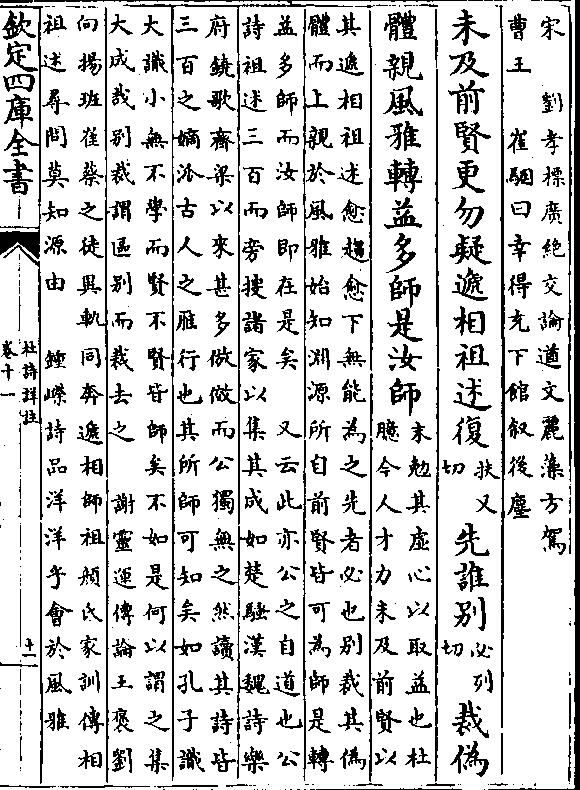 宋　劉孝標廣絶交論遒文麗藻方駕
曹王　崔駰曰幸得充下館叙後塵
未及前賢更勿疑遞相祖述復扶又切先誰別必列切裁偽
體親風雅轉益多師是汝師
末勉其虚心以取益也杜
臆今人才力未及前賢以
其遞相祖述愈趨愈下無能為之先者必也別裁其偽
體而上親於風雅始知淵源所自前賢皆可為師是轉
益多師而汝師即在是矣　又云此亦公之自道也公
詩祖述三百而旁搜諸家以集其成如楚騷漢魏詩樂
府鐃歌齊梁以來甚多倣做而公獨無之然讀其詩皆
三百之嫡派古人之雁行也其所師可知矣如孔子識
大識小無不學而賢不賢皆師矣不如是何以謂之集
大成哉別裁謂區別而裁去之　謝靈運傳論王褒劉
向揚班崔蔡之徒異軌同奔遞相師祖顔氏家訓傳相
祖述尋問莫知源由　鍾嶸詩品洋洋乎會於風雅
欽定四庫全書
杜詩詳註
卷十一
十一